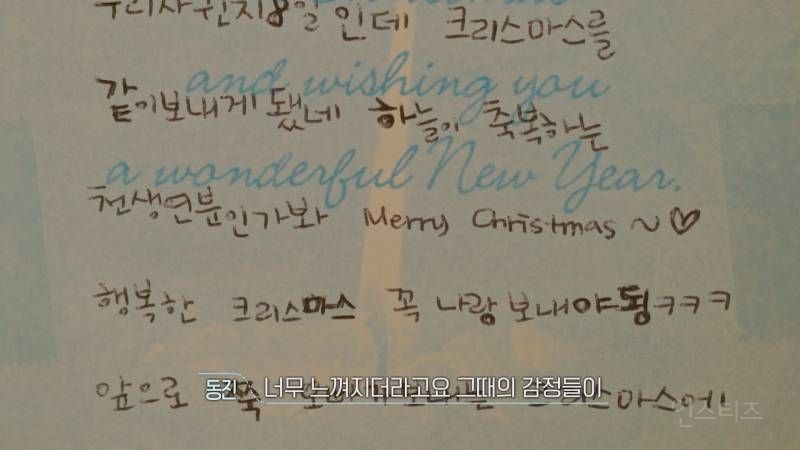 우리사귄지8일인데 크리스마스를
and wishing you
같이보내게 됐네 하늘이 축복하는
a wonderful New Year.
천생연분인가봐 Merry Christmas ~♡
행복한 크리스마스 꼭 나랑 보내야됭ㅋㅋㅋ
동진 너무 느껴지더라고요 그때의 감정들이
앞으로 쭉 크리스마스에
인스티즈